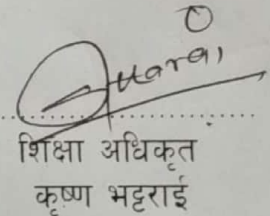 शिक्षा अधिकृत
कृष्ण भट्टराई